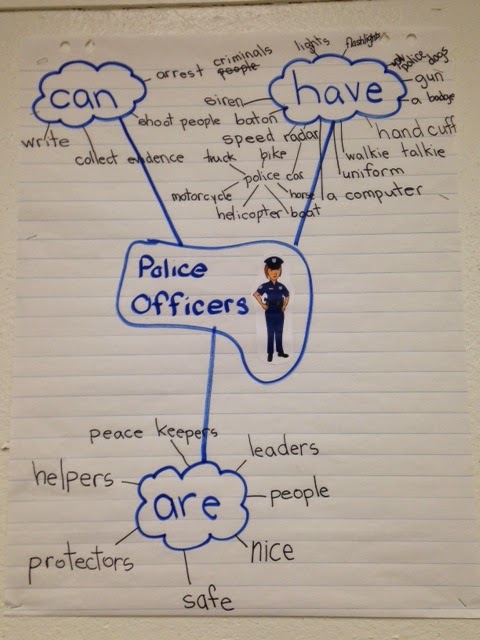 can
arrest criminals
people
shoot people
collect evidence
write
have
lights
flashlights
police dogs
gun
a badge
hand cuff
walkie talkie
uniform
a computer
siren
baton
speed radar
police car
truck
bike
motorcycle
helicopter
boat
horse
Police
Officers
are
peace keepers
leaders
helpers
people
protectors
nice
safe